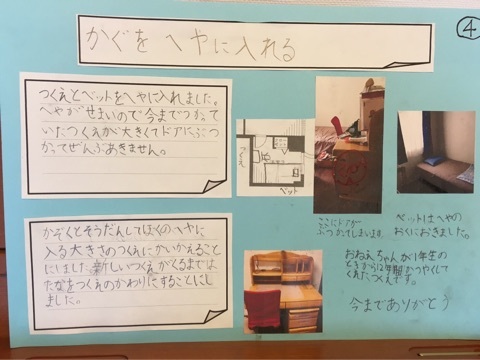 ④
かぐを へやに入れる
つくえとベットをへやに入れました。
へやがせまいので今までつかって
いたつくえが大きくてドアにぶつ
かってぜんぶあきません。
ベット
ここにドアが
ぶつかってしまいます
ベットはへやの
おくにおきました。
かぞくとそうだんしてぼくのへやに
入る大きさのつくえにかいかえること
にしました。新しいつくえがくるまでは
たなをつくえのかわりにすることにし
ました。
おねえちゃんが1年生の
ときから12年間かつやくして
くれたつくえです。
今までありがとう